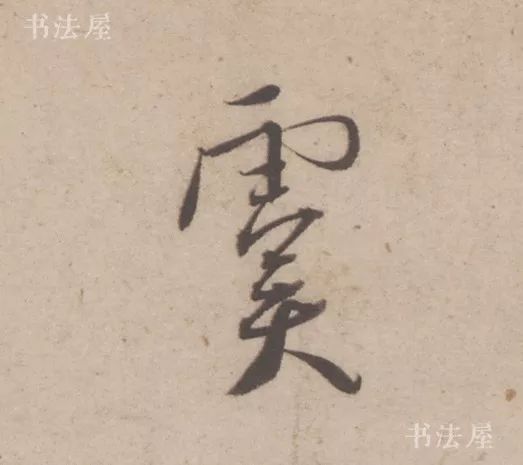 书法屋
虞
书法屋